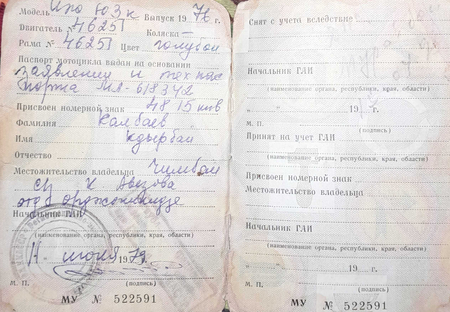 Модель Иж Ю3 к Выпуск 1976 г.
Двигатель № 46251 Коляска –
Рама № 46251 Цвет голубой
Паспорт мотоцикла выдан на основании
заявлении и тех пас
порта МЛ-618342
Присвоен номерной знак 4815
Фамилия Калбаев
Имя Кдырбай
Отчество
Местожительство владельца Чимбай
с/х К Авезова
отд Орджоникидзе
Начальник ГАИ
(наименование органа, республики, края, области)
июня 1979 г.
М. П. (подпись)
МУ № 522591
Снят с учета вследствие
Начальник ГАИ
(наименование органа, республики, края, области)
" " 19 г.
М. П. (подпись)
Принят на учет ГАИ
(наименование органа, республики, края, области)
Присвоен номерной знак
Местожительство владельца
Начальник ГАИ
(наименование органа, республики, края, области)
" " 19 г.
М. П. (подпись)
МУ № 522591